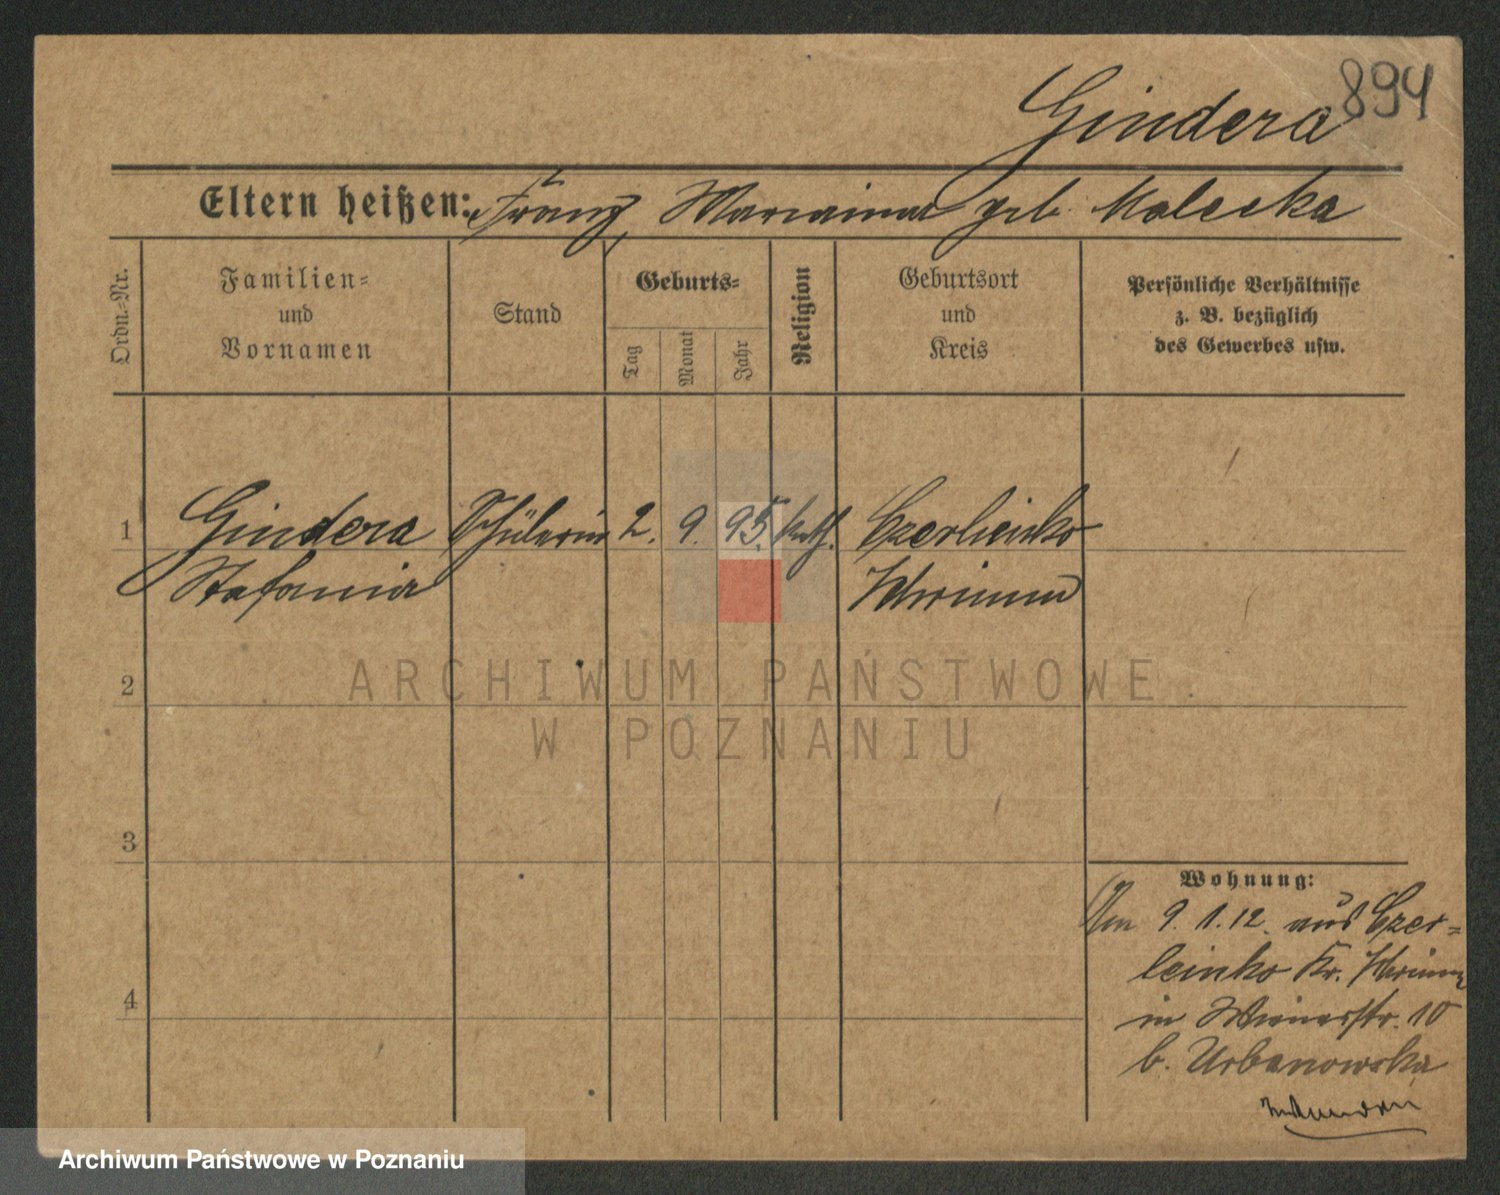 894
Gindera
Eltern heißen: Franz, Marianna geb. Malecka
Ordn.-Nr.
Familien- und Vornamen
Stand
Geburts-
Tag
Monat
Jahr
Religion
Geburtsort und Kreis
Persönliche Verhältnisse
z. B. bezüglich
des Gewerbes usw.
1 Gindera Schülerin 2. 9. 95. kath. Czerleinko
Stefania Schrimm
2
3
4
Wohnung:
Am 9.1.12. aus Czer-
leinko Kr. Schrimm
in Wienerstr. 10
b. Urbanowska
ARCHIWUM PAŃSTWOWE
W POZNANIU
Archiwum Państwowe w Poznaniu